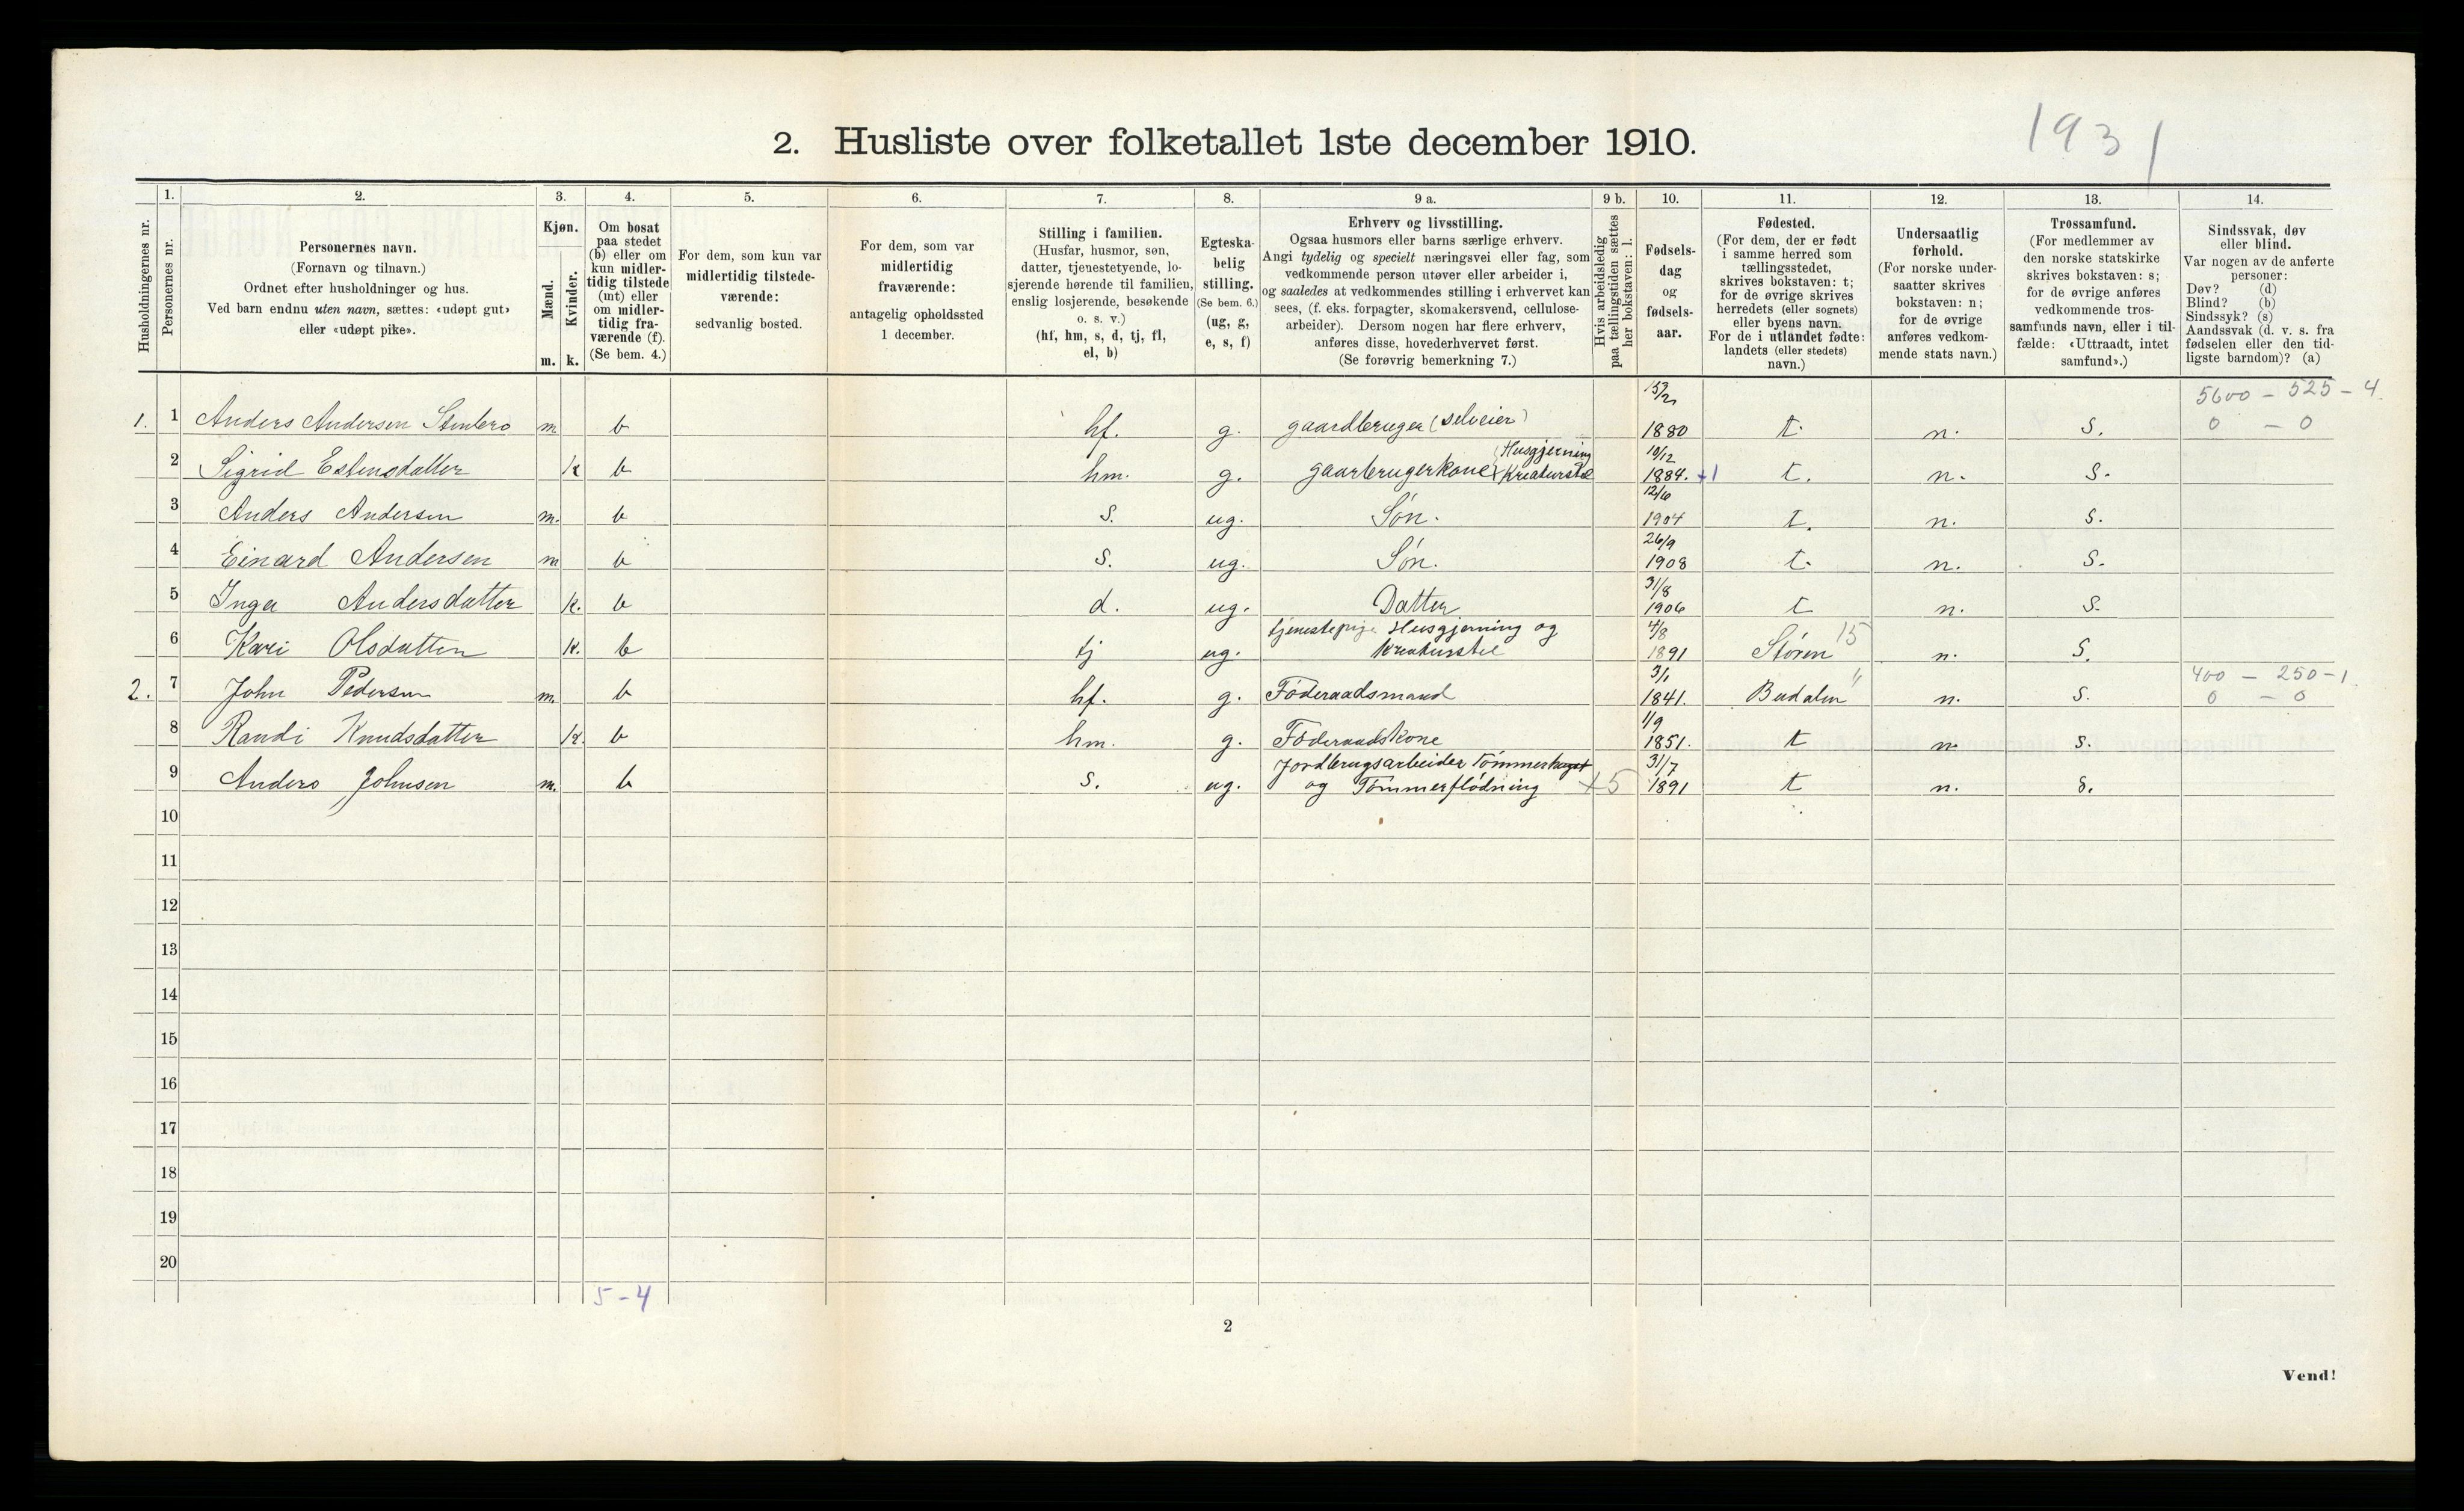 1931
2. Husliste over folketallet 1ste december 1910.
Husholdningernes nr.
1.
Personernes nr.
2.
Personernes navn.
(Fornavn og tilnavn.)
Ordnet efter husholdninger og hus.
Ved barn endnu uten navn, sættes: «udøpt gut»
eller «udøpt pike».
3.
Kjøn.
Mænd.
Kvinder.
m. k.
4.
Om bosat
paa stedet
(b) eller om
kun midler-
tidig tilstede
(mt) eller
om midler-
tidig fra-
værende (f).
(Se bem. 4.)
5.
For dem, som kun var
midlertidig tilstede-
værende:
sedvanlig bosted.
6.
For dem, som var
midlertidig
fraværende:
antagelig opholdssted
1 december.
7.
Stilling i familien.
(Husfar, husmor, søn,
datter, tjenestetyende, lo-
sjerende hørende til familien,
enslig losjerende, besøkende
o. s. v.)
(hf, hm, s, d, tj, fl,
el, b)
8.
Egteska-
belig
stilling.
(Se bem. 6.)
(ug, g,
e, s, f)
9 a.
Erhverv og livsstilling.
Ogsaa husmors eller barns særlige erhverv.
Angi tydelig og specielt næringsvei eller fag, som
vedkommende person utøver eller arbeider i,
og saaledes at vedkommendes stilling i erhvervet kan
sees, (f. eks. forpagter, skomakersvend, cellulose-
arbeider). Dersom nogen har flere erhverv,
anføres disse, hovederhvervet først.
(Se forøvrig bemerkning 7.)
9 b.
Hvis arbeidsledig
paa tællingstiden sættes
her bokstaven: l.
10.
Fødsels-
dag
og
fødsels-
aar.
11.
Fødested.
(For dem, der er født
i samme herred som
tællingsstedet,
skrives bokstaven: t;
for de øvrige skrives
herredets (eller sognets)
eller byens navn.
For de i utlandet fødte:
landets (eller stedets)
navn.)
12.
Undersaatlig
forhold.
(For norske under-
saatter skrives
bokstaven: n;
for de øvrige
anføres vedkom-
mende stats navn.)
13.
Trossamfund.
(For medlemmer av
den norske statskirke
skrives bokstaven: s;
for de øvrige anføres
vedkommende tros-
samfunds navn, eller i til-
fælde: «Uttraadt, intet
samfund».)
14.
Sindssvak, døv
eller blind.
Var nogen av de anførte
personer:
Døv? (d)
Blind? (b)
Sindssyk? (s)
Aandssvak (d. v. s. fra
fødselen eller den tid-
ligste barndom)? (a)
5600 - 525 - 4
1. 1 Anders Andersen Stenbro m b hf. g. gaardbruger (selveier) 1880 t. n. s. 0 - 0
2 Sigrid Estensdatter k b hm. g. gaarbrugerkone (Husgjerning Kreaturstel 10/12 1884. +1 t. n. s.
3 Anders Andersen m. b s. ug. Søn. 12/6 1904 t. n. s.
4 Einard Andersen m b s. ug. Søn. 26/9 1908 t. n. s.
5 Inga Andersdatter k. b d. ug. Datter 31/8 1906 t n. s.
6 Kari Olsdatter k. b tj ug. tjenestepige Husgjerning og Kreaturstel 4/8 1891 Støren 15 n. s.
400 - 250 - 1
2. 7 John Pedersen m. b hf. g. Föderaadsmand 3/1 1841. Budalen " n. s. 0 - 0
8 Randi Knudsdatter k. b hm. g. Föderaadskone 1/9 1851. t n. s.
9 Anders Johnsen m. b s. ug. Jordbrugsarbeider Tömmerhuget og Tömmerflödning +5 31/7 1891 t n. s.
10
11
12
13
14
15
16
17
18
19
20
5-4
2
Vend!